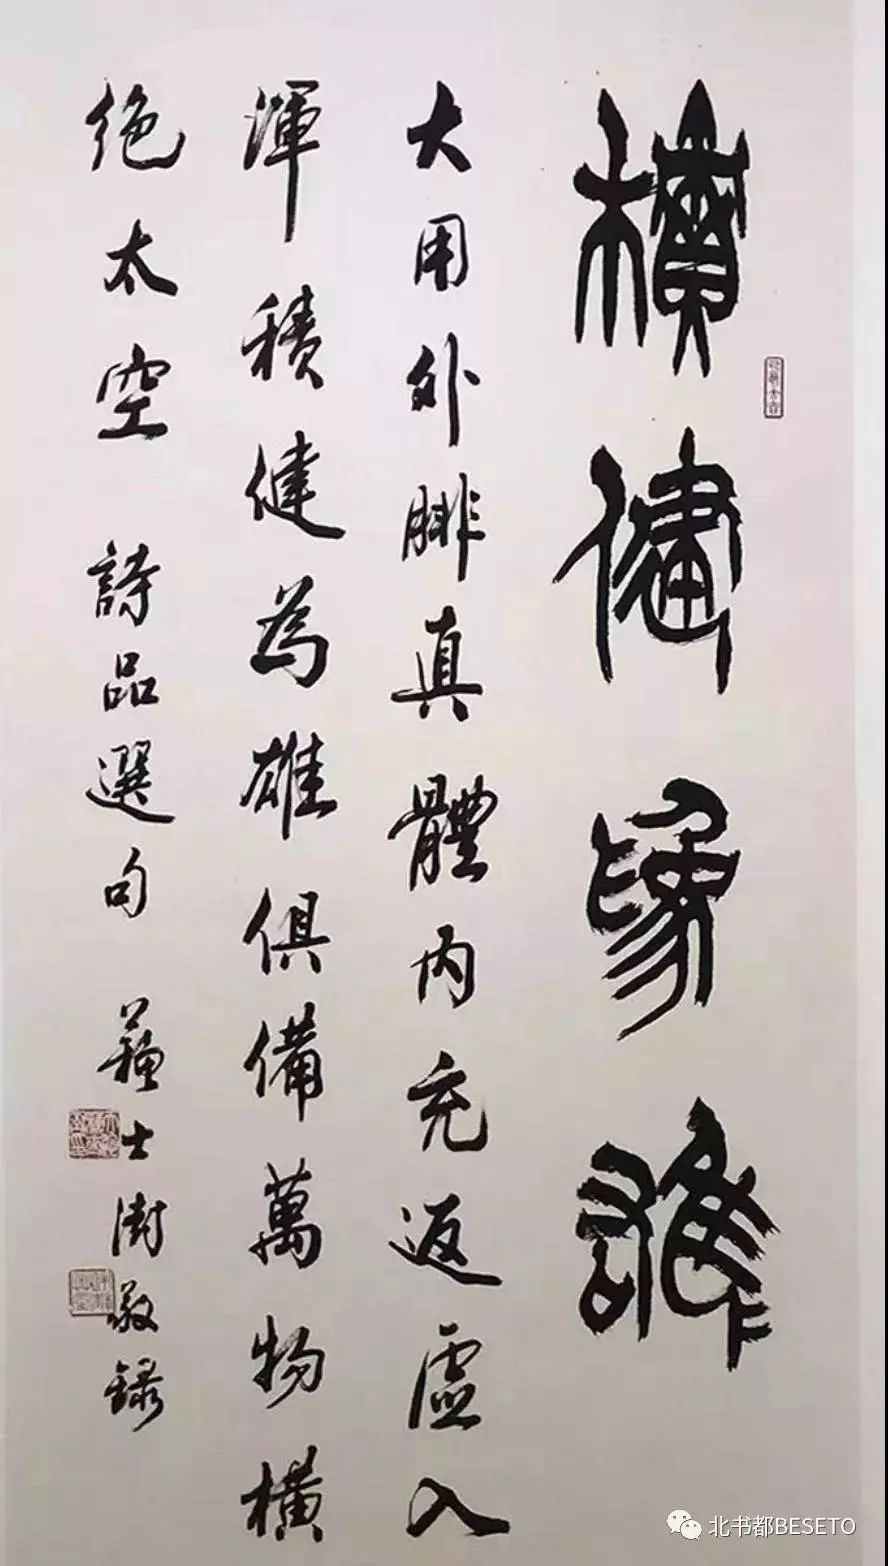 積健為雄
大用外腓真體內充返虛入
渾積健為雄俱備萬物橫
絕太空 詩品選句 蘇士澍敬錄
北书都BESETO